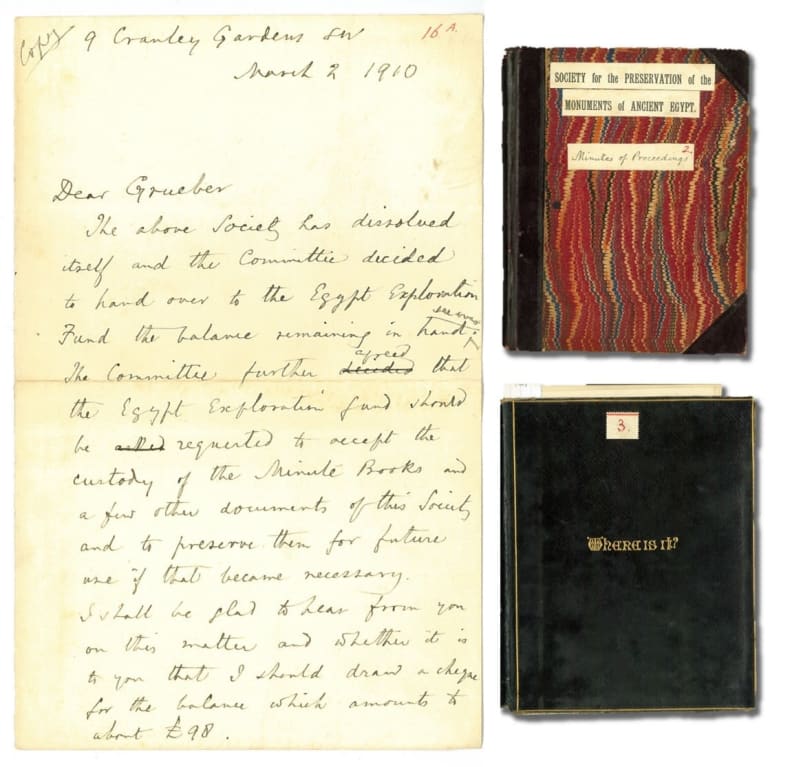 Copy
9 Cranley Gardens SW
16 A.
March 2 1910
Dear Grueber
The above Society has dissolved
itself and the Committee decided
to hand over to the Egypt Exploration
see over
Fund the balance remaining in hand.
agreed
The Committee further decided that
the Egypt Exploration Fund should
be asked requested to accept the
custody of the Minute Books and
a few other documents of this Society
and to preserve them for future
use if that became necessary.
I shall be glad to hear from you
on this matter and whether it is
to you that I should draw a cheque
for the balance which amounts to
about £98.
SOCIETY for the PRESERVATION of the
MONUMENTS of ANCIENT EGYPT.
2.
Minutes of Proceedings
3.
Where is it?